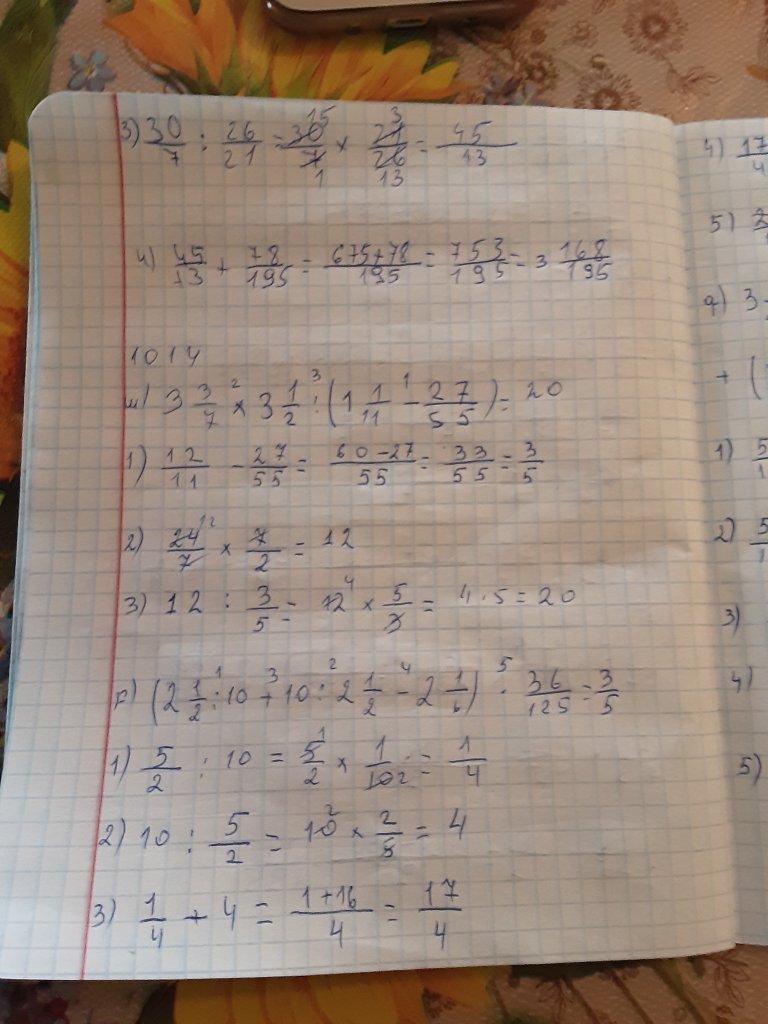 3) 30/7 : 26/21 = 30/7 × 21/26 = 45/13
4) 45/13 + 78/195 = 675+78/195 = 753/195 = 3 168/195
1014
3 3/7 × 3 1/2 : (1 1/11 - 27/55) = 20
1) 12/11 - 27/55 = 60-27/55 = 33/55 = 3/5
2) 24/7 × 7/2 = 12
3) 12 : 3/5 = 12 × 5/3 = 4·5=20
(2 1/2 : 10 + 10 : 2 1/2 - 2 1/6) · 36/125 = 3/5
1) 5/2 : 10 = 5/2 × 1/10 = 1/4
2) 10 : 5/2 = 10 × 2/5 = 4
3) 1/4 + 4 = 1+16/4 = 17/4
4) 17/4
5)
+ (
1)
2)
3)
4)
5)